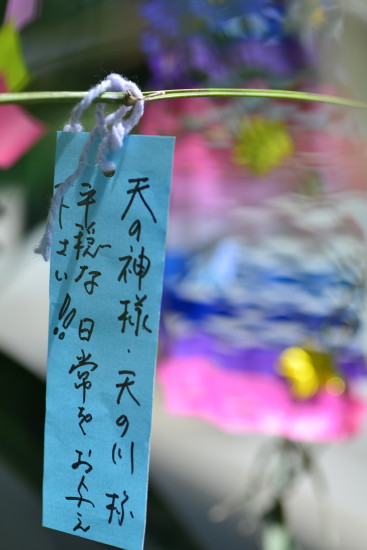 天の神様・天の川様
平穏な日常をお与え
下さい!!!